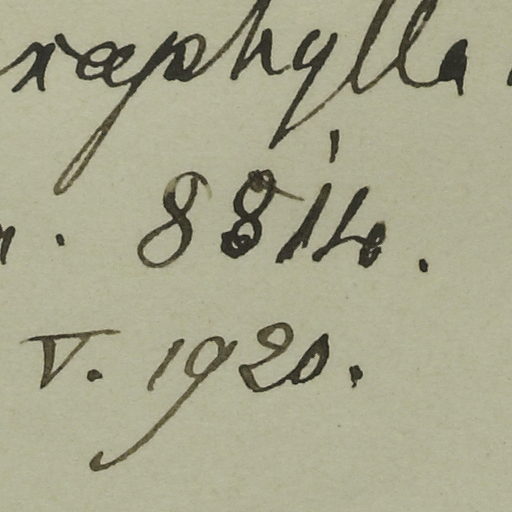 xaphylla
. 8814.
V. 1920.